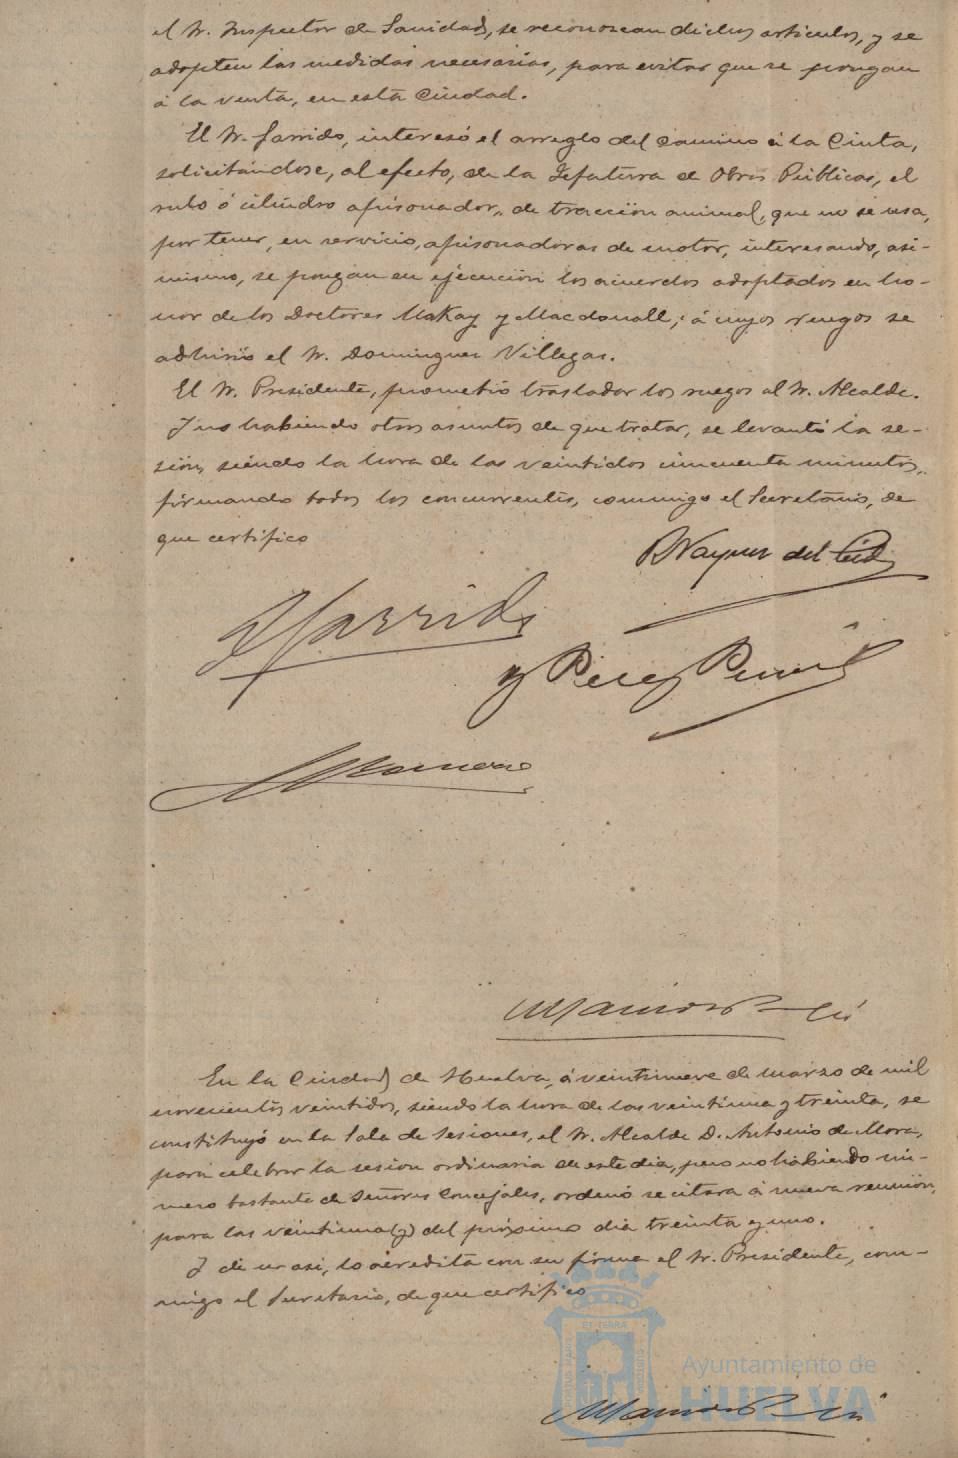 el Sr. Inspector de Sanidad, se reconozcan dichos articulos, y se
adopten las medidas necesarias, para evitar que se pongan
á la venta, en esta Ciudad.
El Sr. Garrido, interesó el arreglo del camino á la Cinta,
solicitándose, al efecto, de la Jefatura de Obras Públicas, el
rulo ó cilindro apisonador, de tracción animal, que no se usa,
por tener, en servicio, apisonadoras de motor, interesando, asi-
mismo, se pongan en ejecución los acuerdos adoptados en ho-
nor de los Doctores MaKay y Macdonall; á cuyos ruegos se
adhirió el Sr. Dominguez Villegas.
El Sr. Presidente, prometió trasladar los ruegos al Sr. Alcalde.
Y no habiendo otros asuntos de que tratar, se levantó la se-
sión, siendo la hora de las veintidos cincuenta minutos,
firmando todos los concurrentes, conmigo el Secretario, de
que certifico
del Cid
Garrido
y Perez
Romero
En la Ciudad de Huelva, á veintinueve de marzo de mil
novecientos veintidos, siendo la hora de las veintiuna y treinta, se
constituyó en la Sala de Sesiones, el Sr. Alcalde D. Antonio de Mora,
para celebrar la sesion ordinaria de este dia, pero no habiendo nú-
mero bastante de Señores Concejales, ordenó se citara á nueva reunión,
para las veintiuna (y) del próximo dia treinta y uno.
Y de ser asi, lo acredita con su firma el Sr. Presidente, con-
migo el Secretario, de que certifico
Ayuntamiento de
HUELVA